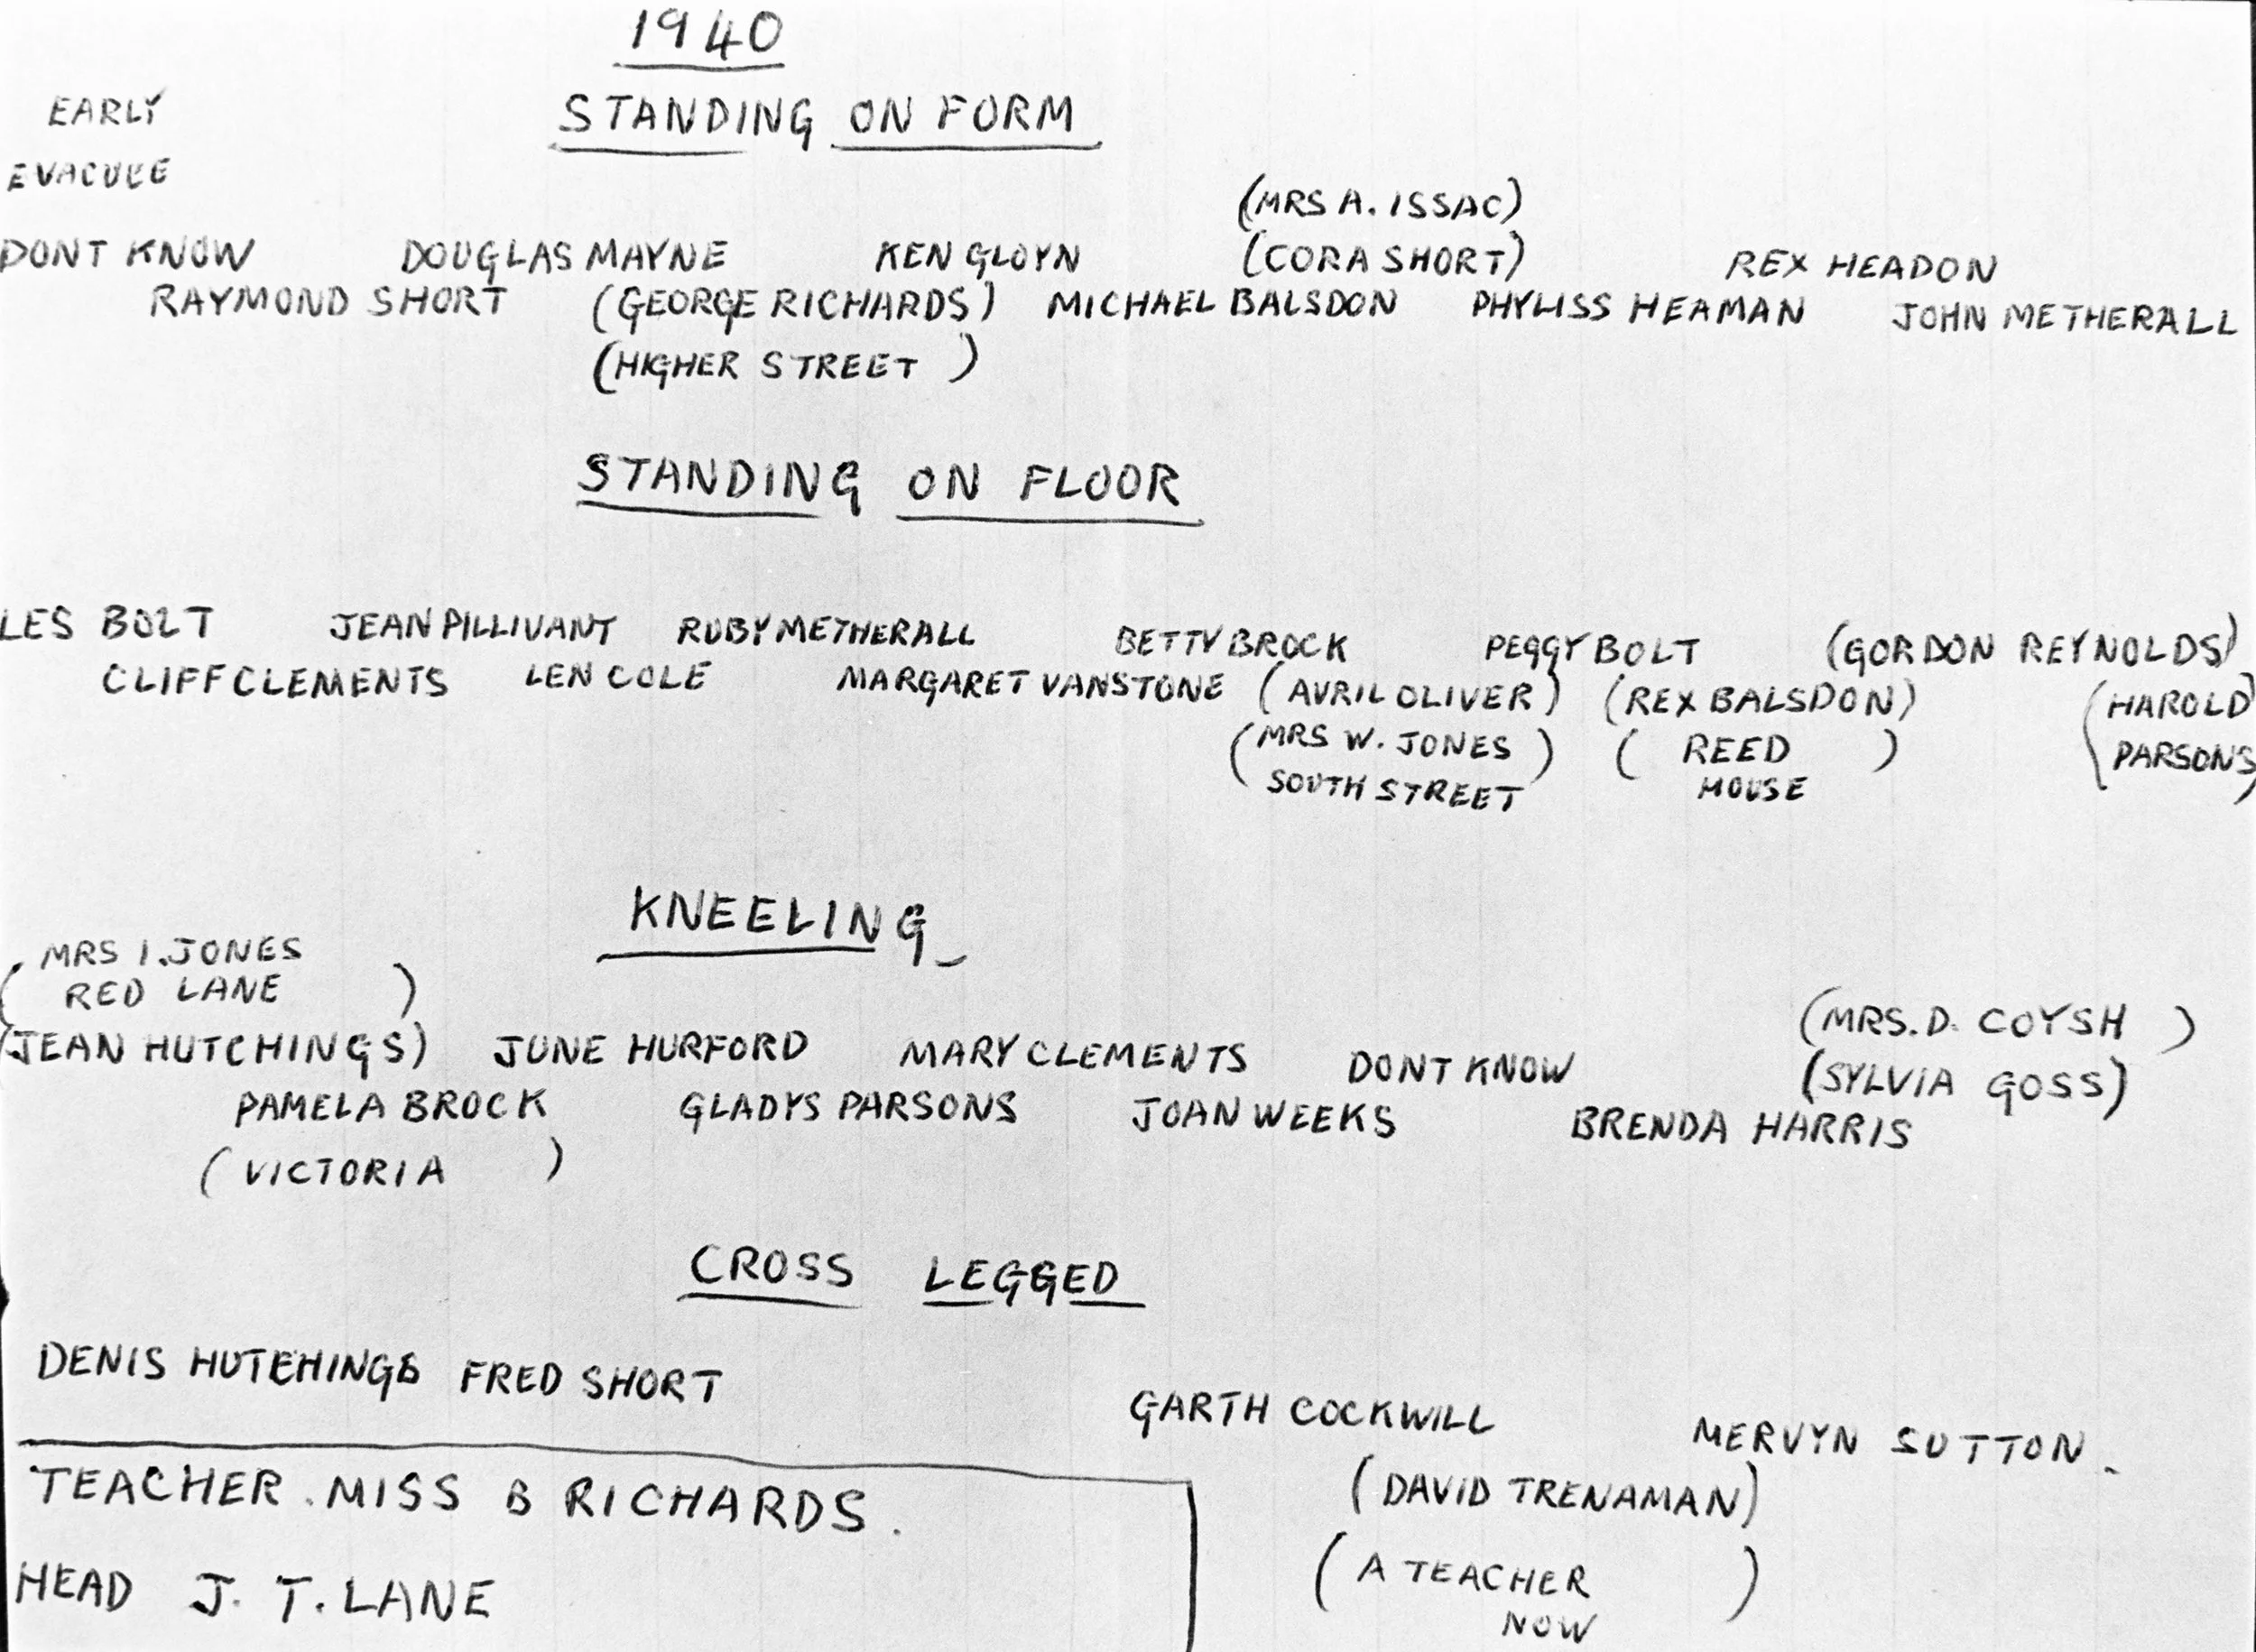 1940
STANDING ON FORM
EARLY
EVACUEE
(MRS A. ISSAC)
DONT KNOW DOUGLAS MAYNE KEN GLOYN (CORA SHORT) REX HEADON
RAYMOND SHORT (GEORGE RICHARDS) MICHAEL BALSDON PHYLISS HEAMAN JOHN METHERALL
(HIGHER STREET )
STANDING ON FLOOR
LES BOLT JEAN PILLIVANT RUBY METHERALL BETTY BROCK PEGGY BOLT (GORDON REYNOLDS)
CLIFF CLEMENTS LEN COLE MARGARET VANSTONE (AVRIL OLIVER) (REX BALSDON) (HAROLD
(MRS W. JONES ) ( REED ) PARSONS)
SOUTH STREET HOUSE
KNEELING
MRS I. JONES
( RED LANE )
(JEAN HUTCHINGS) JUNE HURFORD MARY CLEMENTS DONT KNOW (MRS. D. COYSH )
(SYLVIA GOSS)
PAMELA BROCK GLADYS PARSONS JOAN WEEKS BRENDA HARRIS
(VICTORIA )
CROSS LEGGED
DENIS HUTCHINGS FRED SHORT
GARTH COCKWILL MERVYN SUTTON.
(DAVID TRENAMAN)
( A TEACHER )
NOW
TEACHER. MISS B RICHARDS.
HEAD J. T. LANE